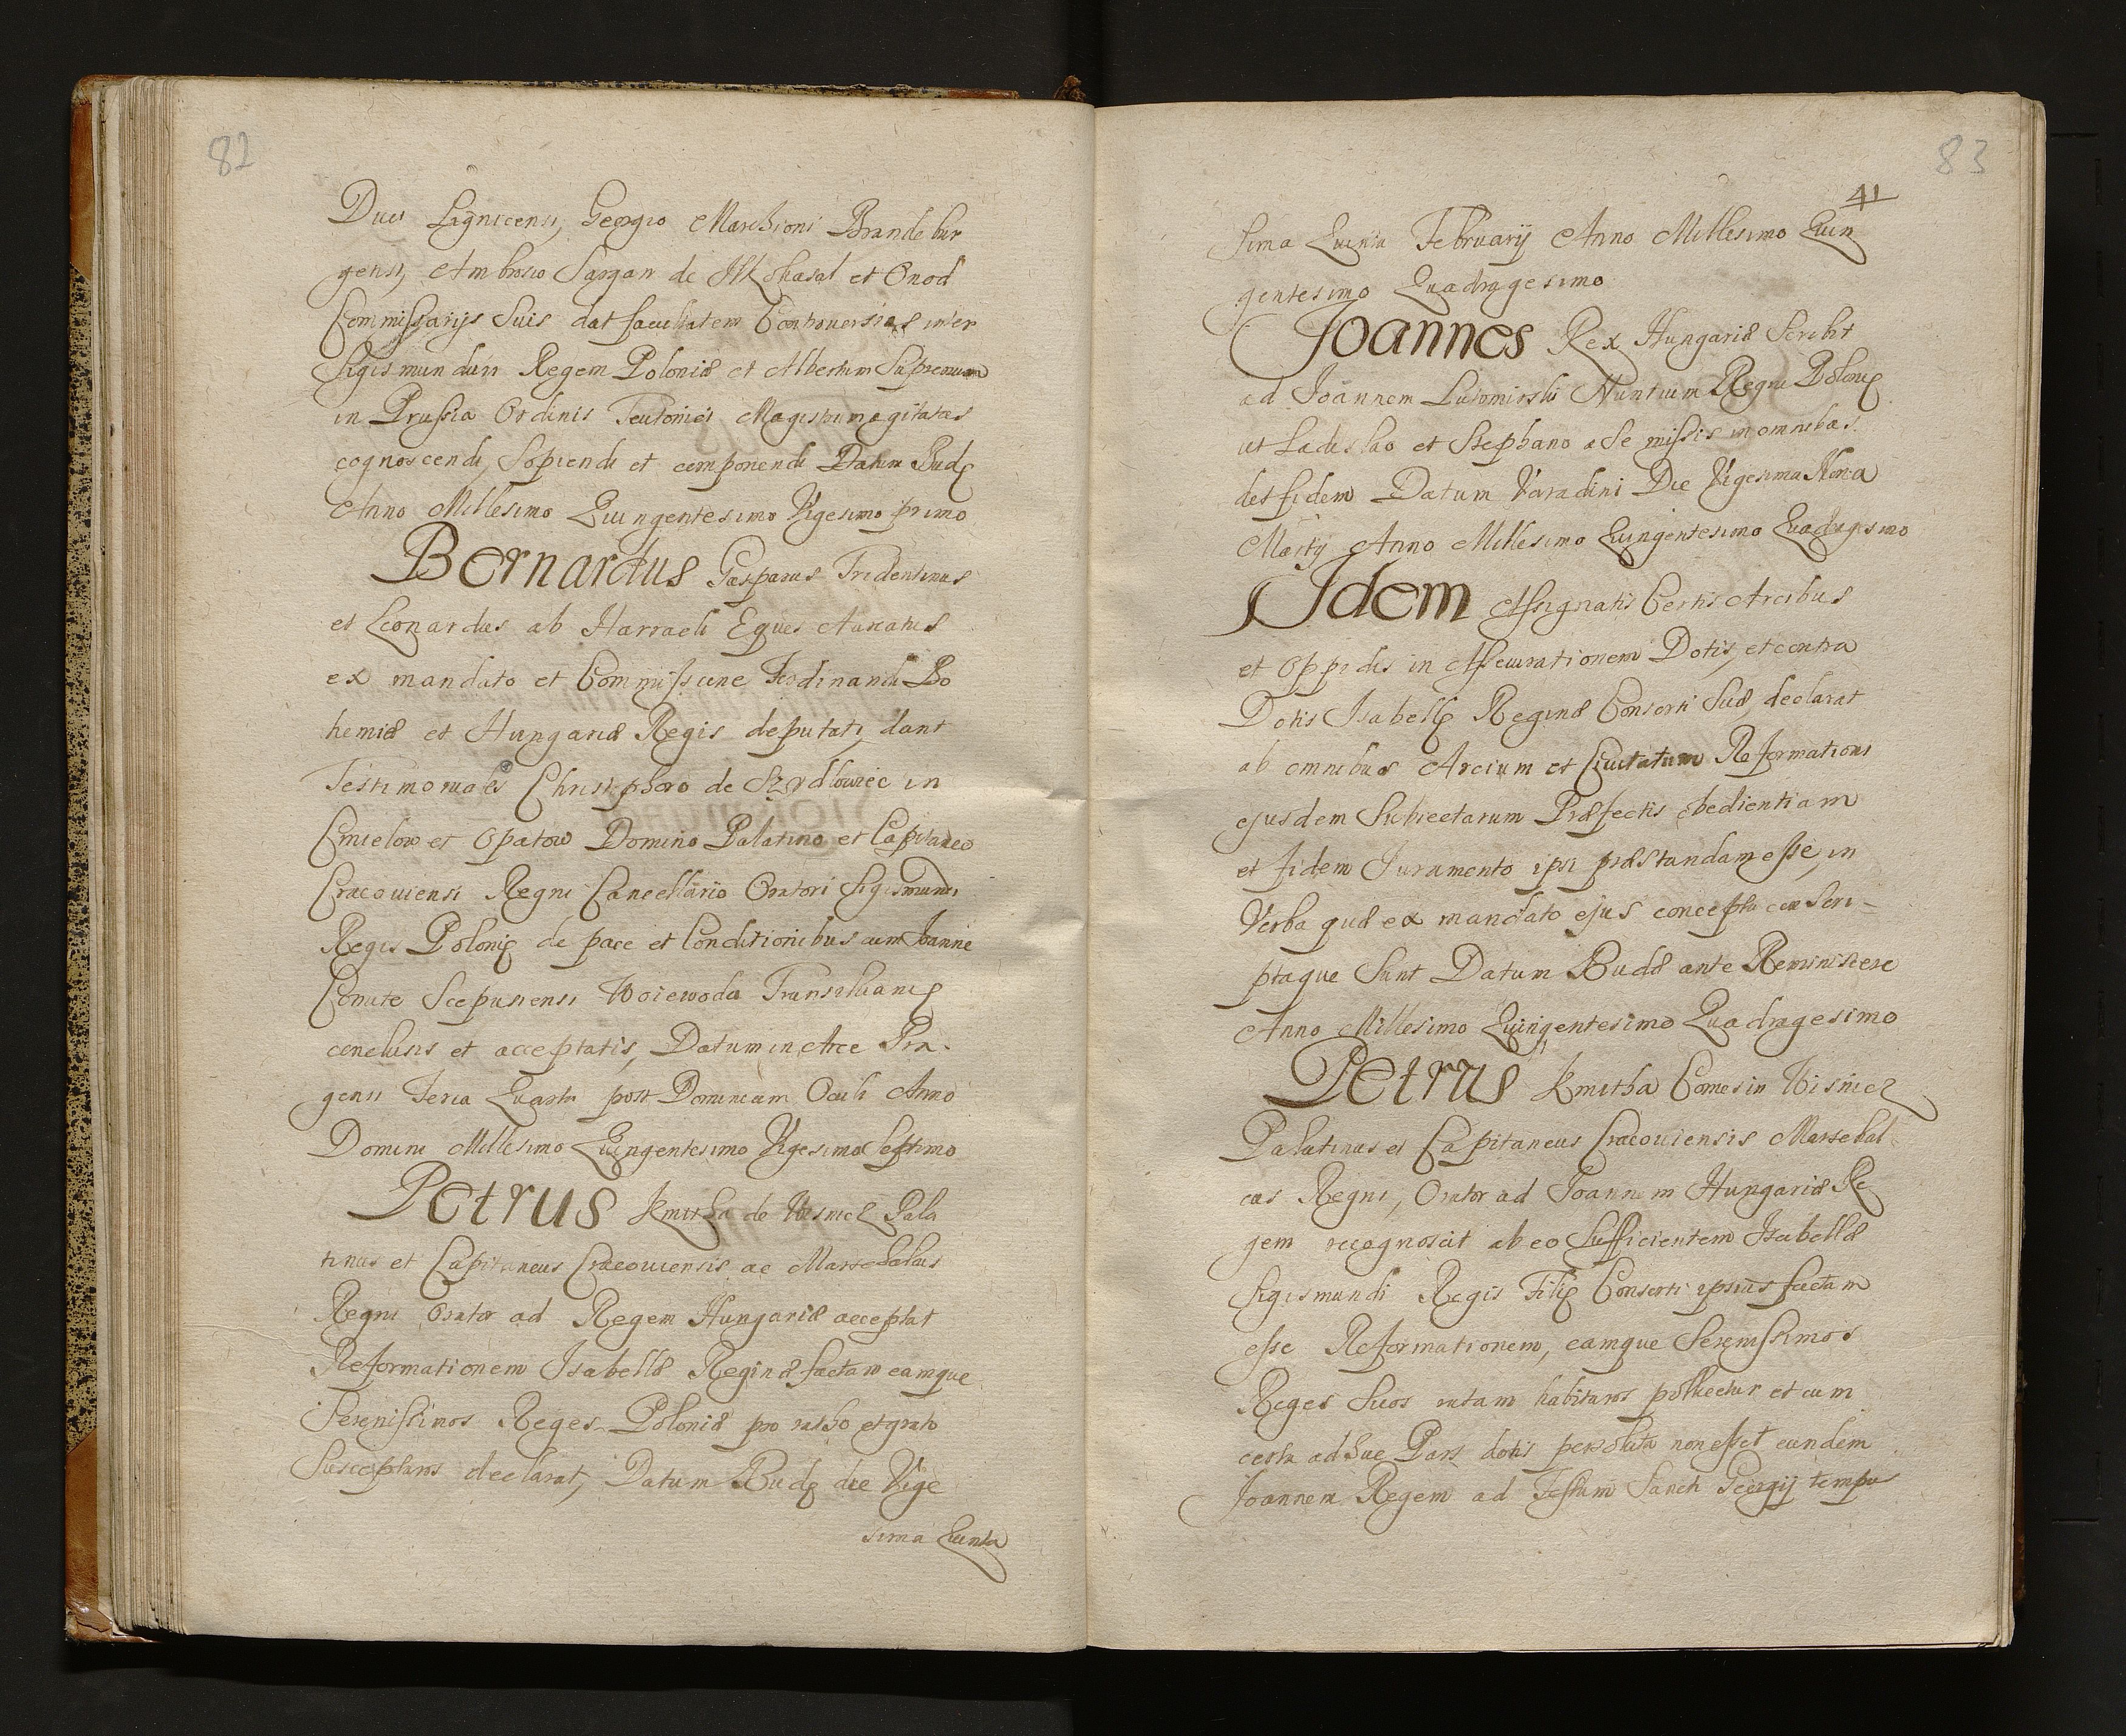 82
Duci Lignicensi, Georgio Marchioni Brandebur
gensi, Ambrosio Sargan de et Onod
Commissarijs Suis dat facultatem Controversias inter
Sigismundum Regem Poloniæ et Albertum Supremum
in Prussia Ordinis Teutonici Magistrum agitatas
cognoscendi, Sopiendi et componendi Datum Budę
Anno Millesimo Quingentesimo Vigesimo primo
Bernardus Gasparus Tridentinus
et Leonardus ab Harrach Eques Auratus
ex mandato et Commissione Ferdinandi Bo
hemiæ et Hungariæ Regis deputati, dant
Testimoniales Christophoro de Szydlowiec in
Cmielow et Opatow Domino Palatino et Capitaneo
Cracoviensi Regni Cancellario Oratori Sigismundi
Regis Polonię de pace et Conditionibus cum Joanne
Comite Scepusiensi Woiewoda Transilvanię
conclusis et acceptatis, Datum in Arce Pra-
gensi Feria Quarta post Dominicam Oculi Anno
Domini Millesimo Quingentesimo Vigesimo Septimo
Petrus Kmitha de Wisnicz Pala
tinus et Capitaneus Cracoviensis ac Marschalcus
Regni Orator ad Regem Hungariæ acceptat
Reformationem Isabellæ Reginæ factam eamque
Serenissimos Reges Poloniæ pro ratho et grato
Suscepturos declarat, Datum Budę die Vige
sima Quinta
83
41
sima Quinta Februarij Anno Millesimo Quin
gentesimo Quadragesimo
Joannes Rex Hungariæ Scribit
ad Joannem Lutomirski Nuntium Regni Polonię
ut Ladislao et Stephano a Se missis in omnibus
det fidem Datum Varadini Die Vigesima Nona
Martij Anno Millesimo Quingentesimo Quadragesimo
Idem Assignatis Certis Arcibus
et Oppidis in Assecurationem Dotis, et contra
Dotis Isabellę Reginæ Consorti Suæ, declarat
ab omnibus Arcium et Civitatum Reformationi
ejusdem Subiectarum Præfectis obedientiam
et fidem Juramento ipsi præstandam esse, in
Verba quæ ex mandato ejus concepta con Scri-
ptaque Sunt Datum Budæ ante Reminiscere
Anno Millesimo Quingentesimo Quadragesimo
Petrus Kmitha Comes in Wisnicz
Palatinus et Capitaneus Cracoviensis Marschal-
cus Regni, Orator ad Joannem Hungariæ Re
gem recognoscit ab eo Sufficientem Isabellæ
Sigismundi Regis Filię Consorti ipsius factam
esse Reformationem, eamque Serenissimos
Reges Suos ratam habituros pollicetur et cum
certa adhuc Pars dotis persoluta non esset eundem
Joannem Regem ad Festum Sancti Georgij tempus